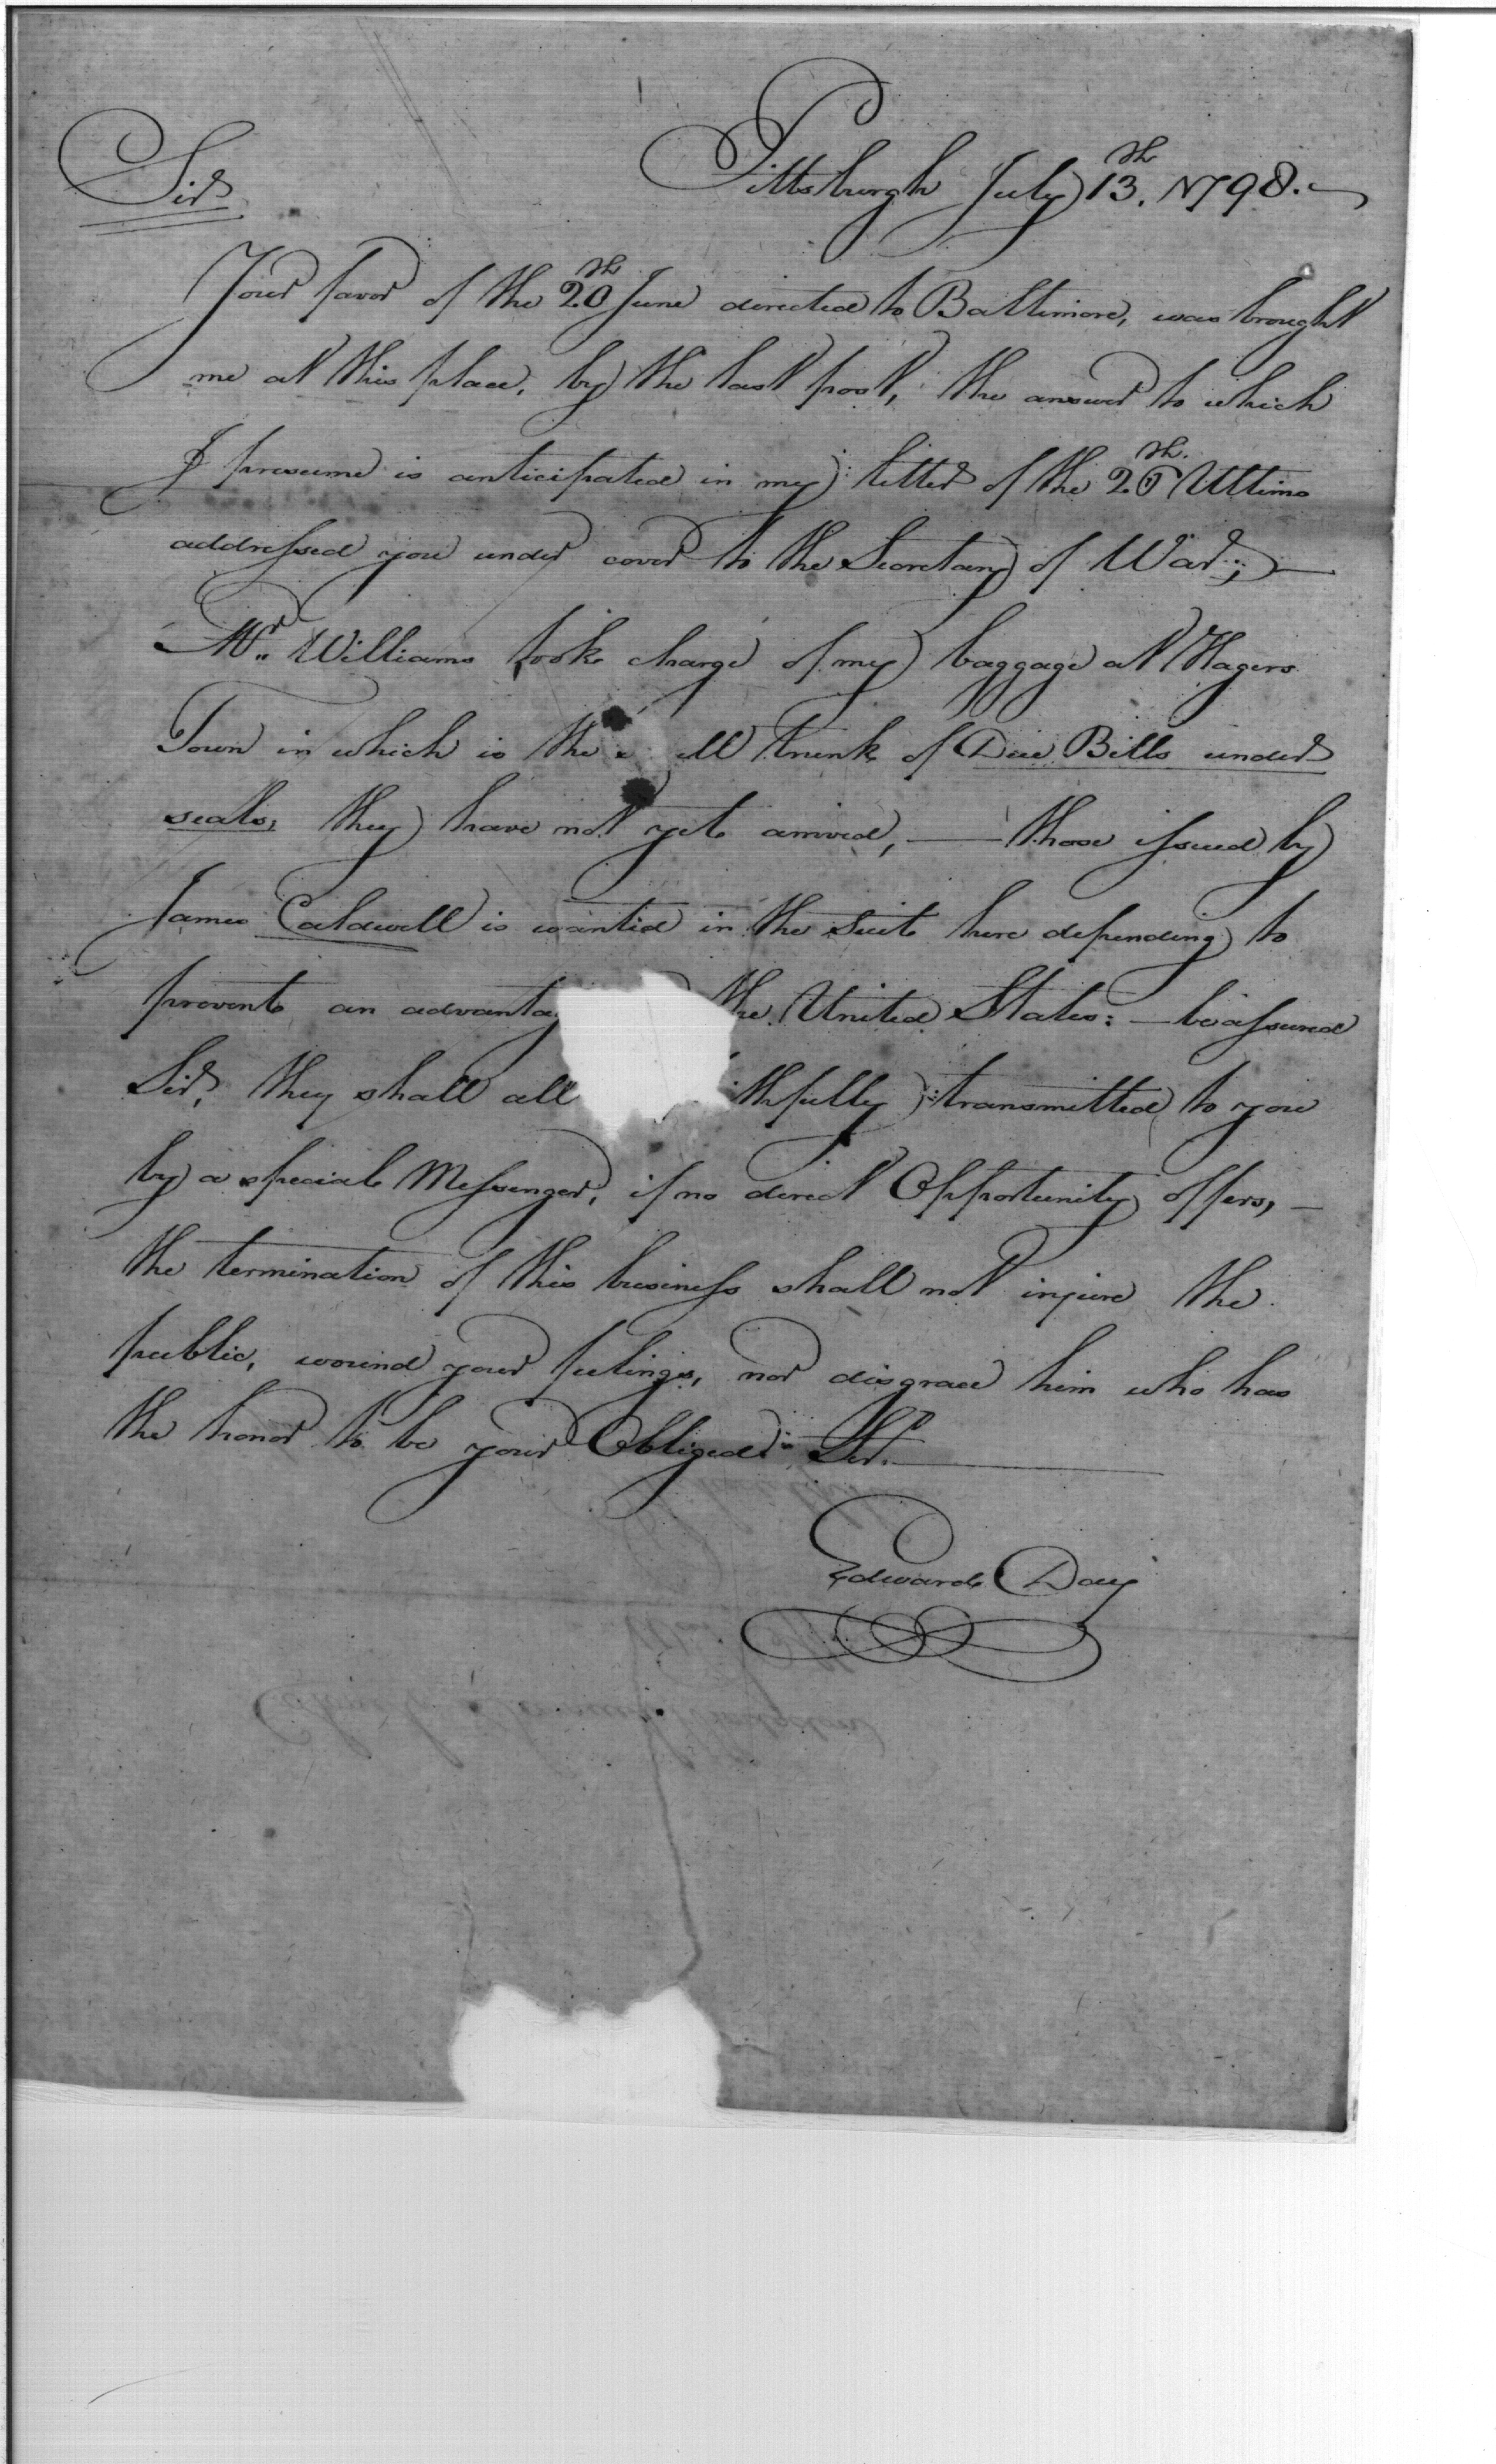 Pittsburgh July 13th. 1798.
Sir
Your favor of the 20th June directed to Baltimore, was brought
me at this place, by the last post, the answer to which
I presume is anticipated in my letter of the Ultimo
addressed you under cover to the Secretary of War;
Mr. Williams took charge of my baggage at Hagers
Town in which is the trunk of Due Bills under
seals, they have not yet arrived, — those issued by
James Caldwell is wanted in the suit here depending to
prevent an the United States: — be assured
Sir, they shall all transmitted to you
by a special Messenger, if no direct Opportunity offers, —
the termination of this business shall not injure the
public, wound your feelings, nor disgrace him who has
the honor to be your Obliged
Edward Day